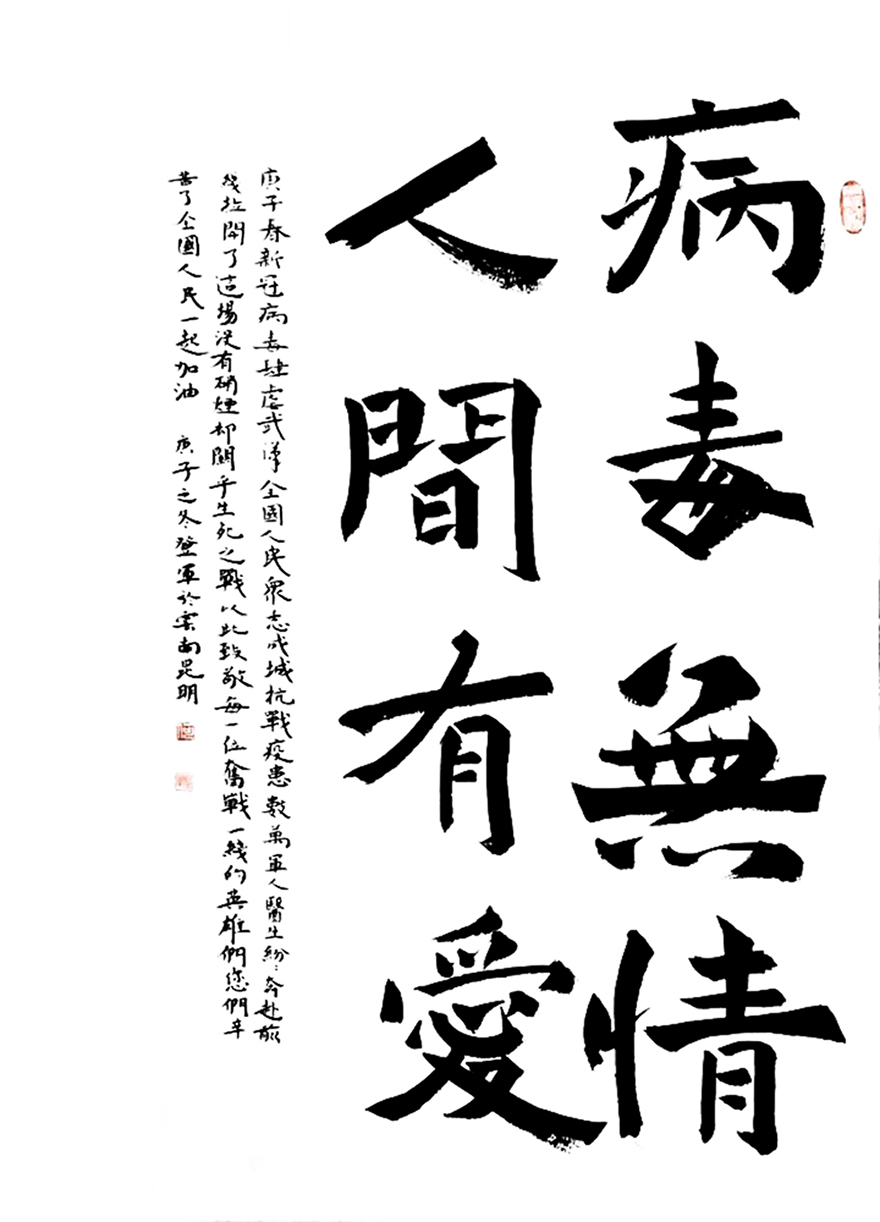 病毒無情
人間有愛
庚子春新冠病毒肆虐武漢全國人民衆志成城抗戰疫患數萬軍人醫生紛紛奔赴前
綫拉開了這場没有硝煙却關乎生死之戰以此致敬每一位奮戰一綫的英雄們您們辛
苦了全國人民一起加油 庚子之冬登軍於雲南昆明